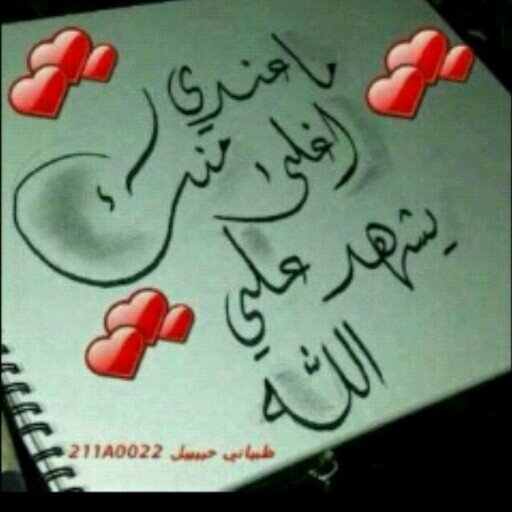 ما عندي
اغلى منك
يشهد علي
الله
211A0022